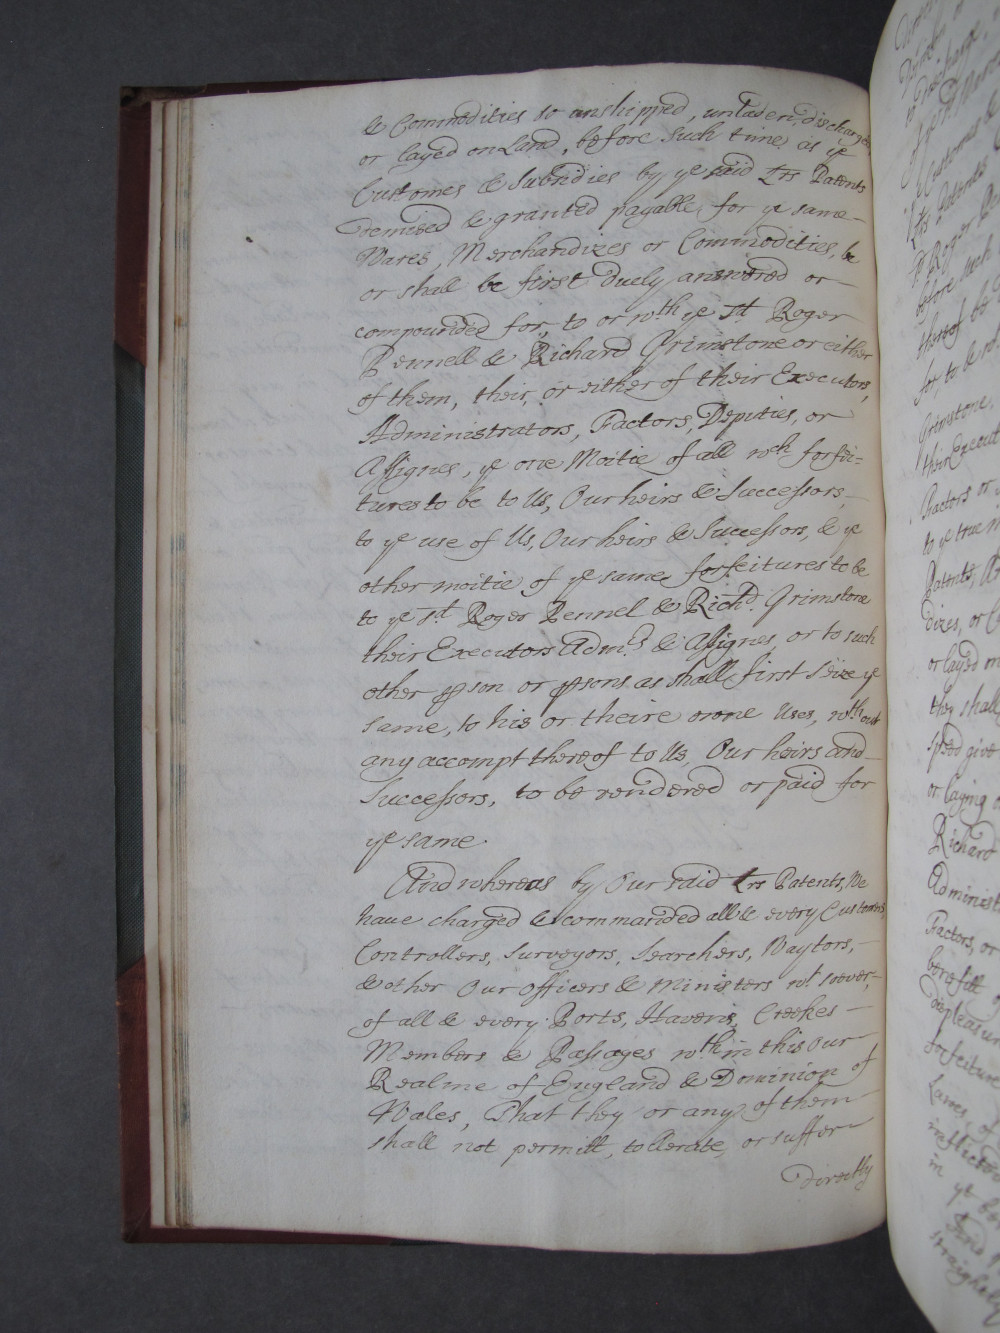 & Commodities so unshipped, unladen, discharged
or layed on Land, before such time as ye
Customes & Subsidies by ye said Lrs Patents
demised & granted payable for ye same
Wares, Merchandizes or Commodities, be
or shal be first duely answered or
compounded for, to or wth ye sd. Roger
Pennell & Richard Grimstone or either
of them, their, or either of their Executors,
Administrators, Factors, Deputies, or
Assignes, ye one Moitie of all wch forfei=
tures to be to Us, Our heirs & Successors,
to ye use of Us, Our heirs & Successors, & ye
other moitie of ye same forfeitures to be
to ye sd. Roger Pennel & Richd. Grimstone
their Executors Adm.rs & Assignes, or to such
other pson or psons as shall first seize ye
same, to his or theire owne Uses, wthout
any accompt thereof to Us, Our heirs and
Successors, to be rendered or paid for
ye same.
And whereas by Our said Lrs Patents, We
haue charged & commanded all & every Customers,
Controllers, Surveyors, Searchers, Waytors,
& other Our Officers & Ministers wt. soever,
of all & every Ports, Havens, Creekes
Members & Passages wthin this Our
Realme of England & Dominion of
Wales, That they or any of them
shall not permitt, tollerate, or suffer
directly
Grimstone,
their Execut
Factors or
to ye true
Patents,
dizes, or
or layed
they shall
speed give
or laying
Richard
Administ
Factors, or
benefitt
displeasure
forfeiture
Lawes of
inflicted
in ye
And
straightly